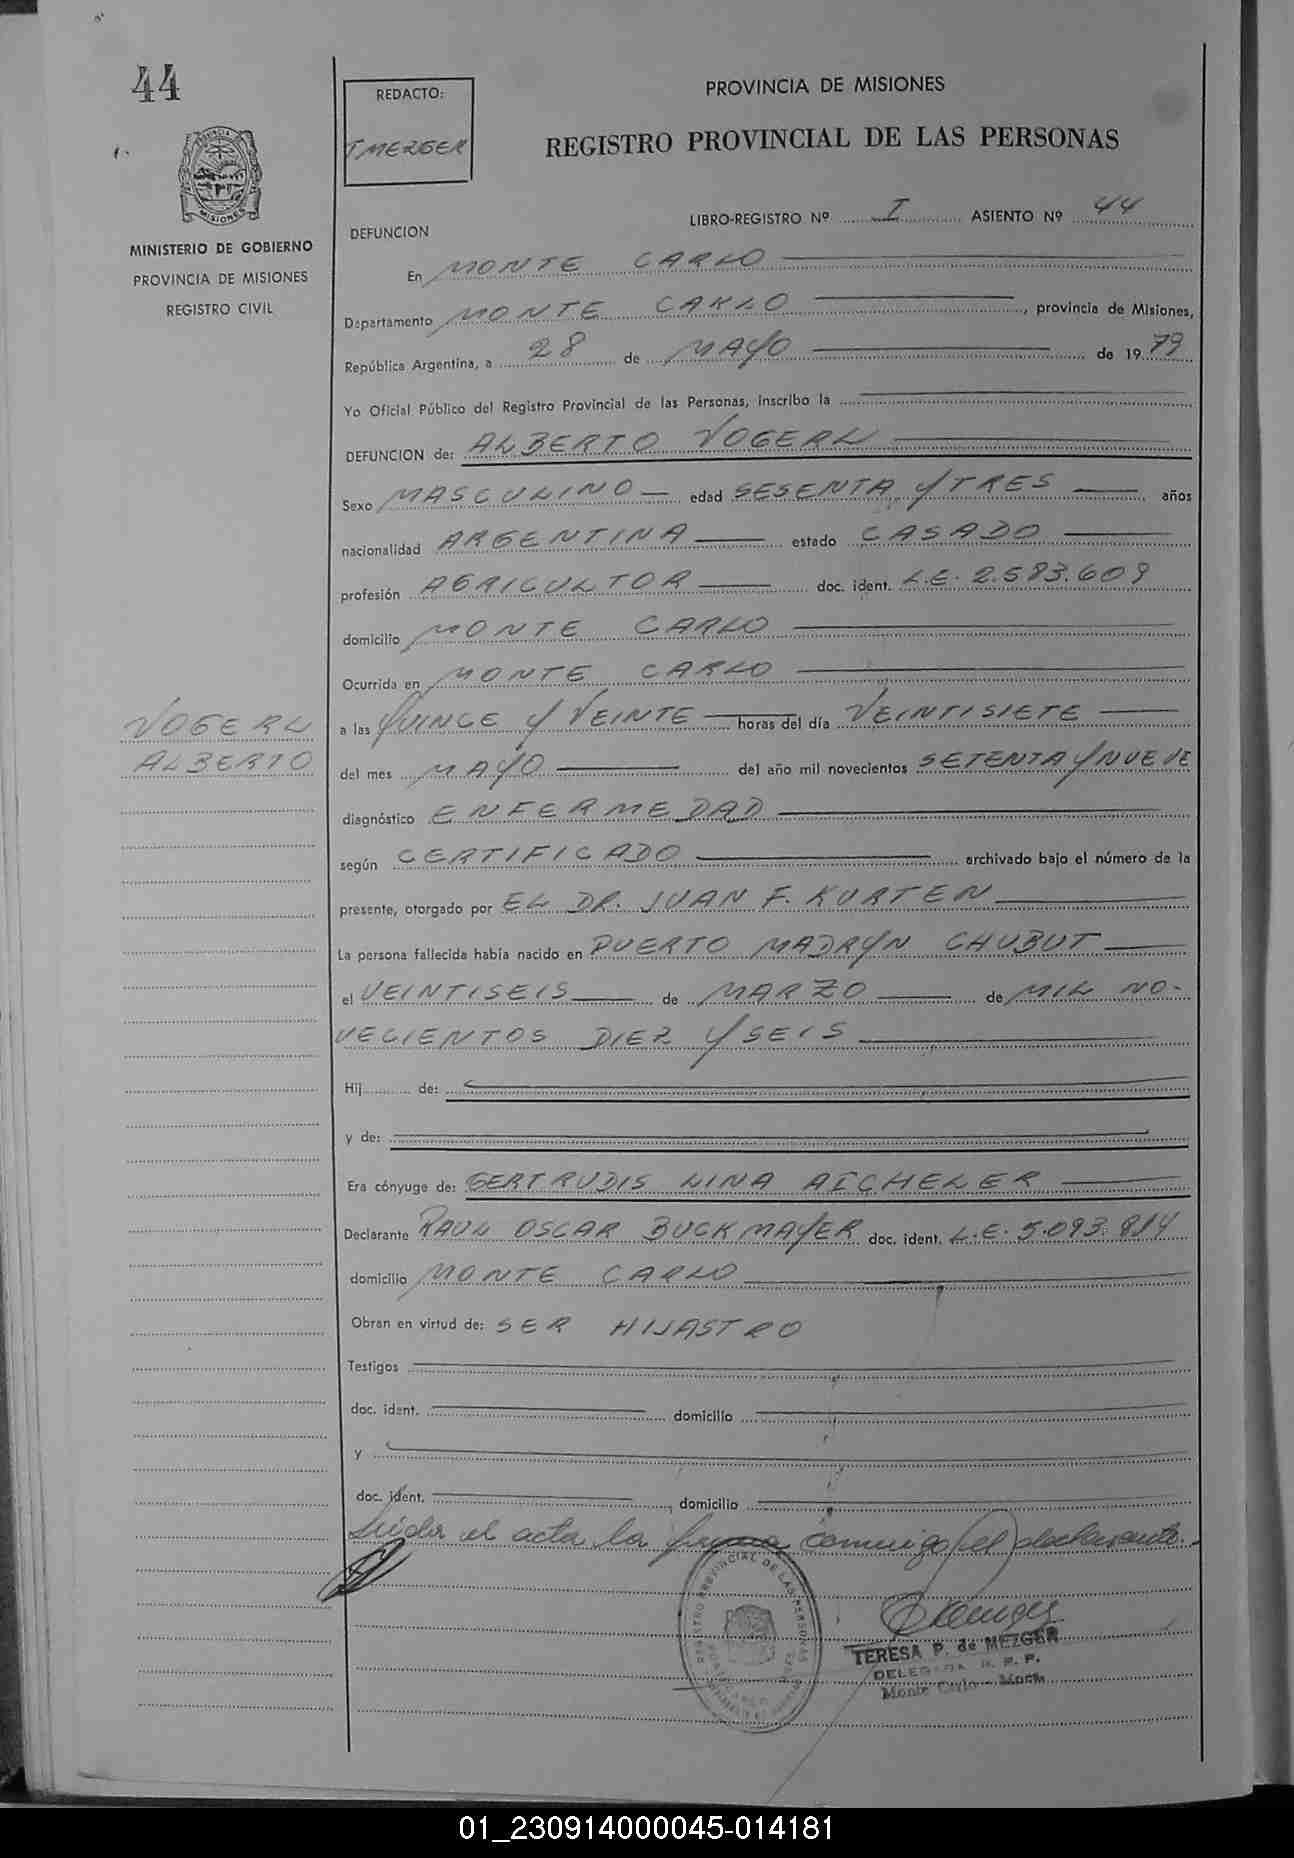 44
REDACTO:
T MEZGER
PROVINCIA DE MISIONES
REGISTRO PROVINCIAL DE LAS PERSONAS
MISIONES
MINISTERIO DE GOBIERNO
PROVINCIA DE MISIONES
REGISTRO CIVIL
LIBRO-REGISTRO Nº I ASIENTO Nº 44
DEFUNCION
En MONTE CARLO
Departamento MONTE CARLO, provincia de Misiones,
República Argentina, a 28 de MAYO de 1979
Yo Oficial Público del Registro Provincial de las Personas, inscribo la
DEFUNCION de: ALBERTO VOGERL
Sexo MASCULINO edad SESENTA Y TRES años
nacionalidad ARGENTINA estado CASADO
profesión AGRICULTOR doc. ident. L.E. 2.583.609
domicilio MONTE CARLO
Ocurrida en MONTE CARLO
VOGERL
ALBERTO
a las QUINCE Y VEINTE horas del día VEINTISIETE
del mes MAYO del año mil novecientos SETENTA Y NUEVE
diagnóstico ENFERMEDAD
según CERTIFICADO archivado bajo el número de la
presente, otorgado por EL DR. JUAN F. KURTEN
La persona fallecida había nacido en PUERTO MADRYN CHUBUT
el VEINTISEIS de MARZO de MIL NO-
VECIENTOS DIEZ Y SEIS
Hij de:
y de:
Era cónyuge de: GERTRUDIS LINA AICHELER
Declarante RAUL OSCAR BUCKMAYER doc. ident. L.E. 5.093.814
domicilio MONTE CARLO
Obran en virtud de: SER HIJASTRO
Testigos
doc. ident. domicilio
y
doc. ident. , domicilio
Leída el acta la firma conmigo el declarante.
REGISTRO PROVINCIAL DE LAS PERSONAS
TERESA P. de MEZGER
DELEGADA R. P. P.
Monte Carlo - Mnes.
01_230914000045-014181